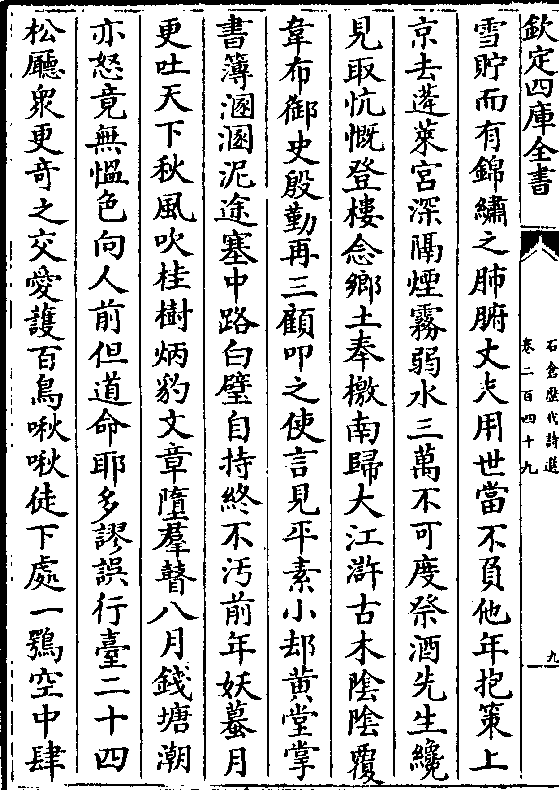 欽定四庫全書
石倉歷代詩選
卷二百四十九
九
雪貯而有錦繡之肺腑丈夫用世當不負他年抱策上
京去蓬萊宮深隔煙霧弱水三萬不可度祭酒先生纔
見取忼慨登樓念鄉土奉檄南歸大江滸古木陰陰覆
韋布御史殷勤再三顧叩之使言見平素小却黄堂掌
書簿溷溷泥途塞中路白璧自持終不汚前年妖蟇月
更吐天下秋風吹桂樹炳豹文章墮羣瞽八月錢塘潮
亦怒竟無愠色向人前但道命耶多謬誤行臺二十四
松廳衆更奇之交愛護百鳥啾啾徒下處一鶚空中肆